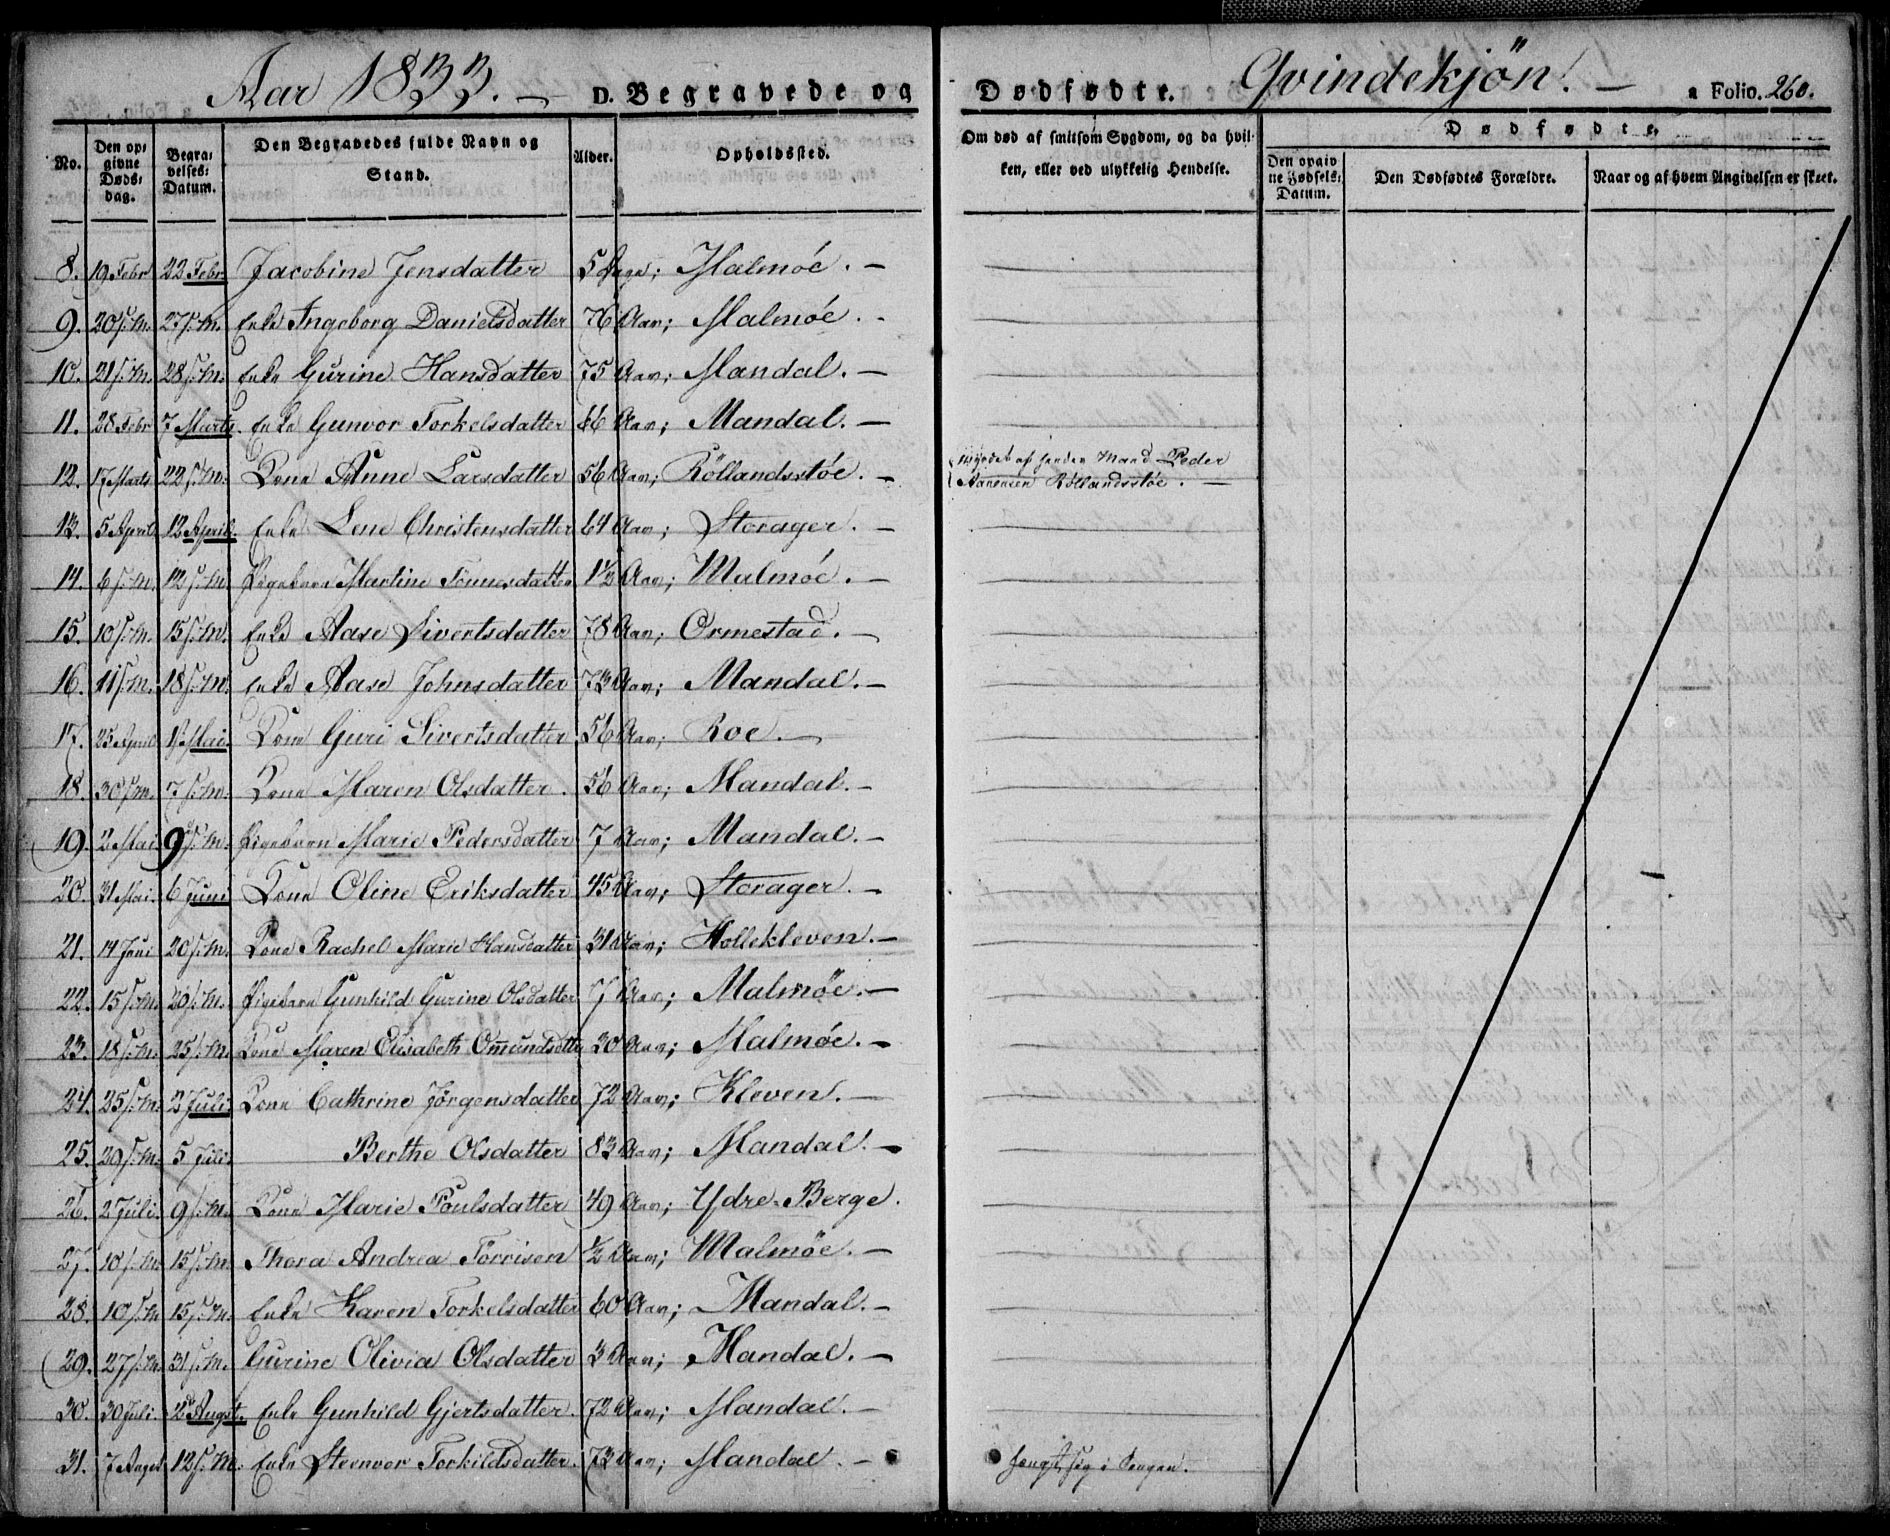 Aar 1833. — D. Begravede og Dødfødte. Qvindekjön. — a Folio. 260.
No. Den opgivne Dødsdag. Begravelses-Datum. Den Begravedes fulde Navn og Stand. Alder. Opholdssted. Om død af smitsom Sygdom, og da hvilken, eller ved ulykkelig Hendelse. Dødfødte. Den opgivne Fødsels-Datum. Den Dødfødtes Forældre. Naar og af hvem Angivelsen er skeet.
8. 19 Febr 22 Febr Jacobine Jensdatter 5 Dage; Malmöe. —
9. 20 s: M. 27 s: M. Enke Ingeborg Danielsdatter 76 Aar; Malmöe. -
10. 21 s: M. 28 s: M. Enke Gurine Hansdatter 75 Aar; Mandal. —
11. 28 Febr 7 Marts. Enke Gunvor Torkelsdatter Aar; Mandal. —
12. 17 Marts 22 s: M. Kone Anne Larsdatter 56 Aar; Röllandsstöe. — Myrdet af hendes Mand Peder
Aanensen Röllandsstöe. —
13. 5 April 12 April. Enke Lene Christensdatter 64 Aar; Storager. —
14. 6 s: M. 12 s: M. Pigebarn Martine Tönnesdatter 1½ Aar; Malmöe. —
15. 10 s: M. 15 s: M. Enke Aase Sivertsdatter 78 Aar; Ormestad. —
16. 11 s: M. 18 s: M. Enke Aase Johnsdatter 73 Aar; Mandal. —
17. 25 April 1 Mai. Kone Guri Sivertsdatter 56 Aar; Roe. —
18. 30 s: M. 7 s: M. Kone Maren Olsdatter. 56 Aar; Mandal. —
19. 2 Mai 9 s: M. Pigebarn Marie Pedersdatter 7 Aar; Mandal. —
20. 31 Mai. 6 Juni Kone Oline Eriksdatter 45 Aar; Storager. —
21. 14 Juni 20 s: M. Kone Rachel Marie Hansdatter 31 Aar; Hollekleven. —
22. 15 s: M. 20 s: M. Pigebarn Gunhild Gurine Olsdatter 7 Aar; Malmöe. —
23. 18 s: M. 25 s: M. Kone Maren Elisabeth Omundsdtter 30 Aar; Malmöe. —
24. 25 s: M. 2 Juli Kone Cathrine Jörgensdatter 72 Aar; Kleven. —
25. 29 s: M. 5 Juli. Berthe Olsdatter 83 Aar; Mandal. —
26. 2 Juli. 9 s: M. Kone Marie Poulsdatter 49 Aar; Ydre-Berge.
27. 10 s: M. 15 s: M. Thora Andrea Törrisen ½ Aar; Malmöe. —
28. 10 s: M 15 s: M. Enke Karen Torkelsdatter 60 Aar; Mandal. —
29. 27 s: M. 31 s: M. Gurine Olivia Olsdatter 3 Aar; Mandal. —
30. 30 Juli. 2 Augst. Enke Gunhild Gjertsdatter. 72 Aar; Mandal. —
31. 7 Augst 12 s: M. Enke Steenvor Torkildsdatter. 73 Aar; Mandal. — hengt sig i Sengen.